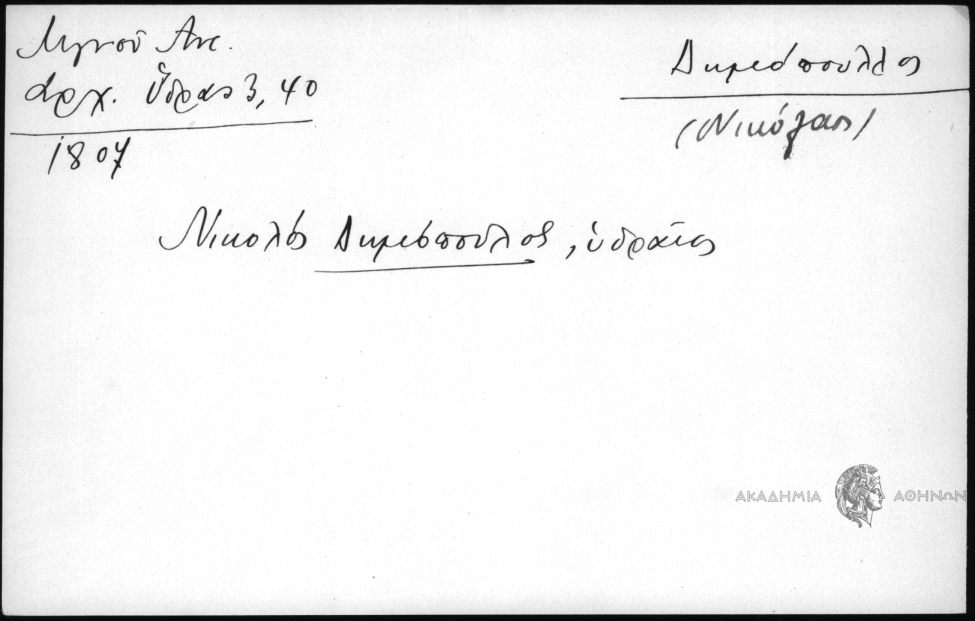 Λιγνού Αντ.
Ἀρχ. Ὕδρας 3, 40
1807
Δημεόπουλλος
(Νικόλαος)
Νικολός Δημεόπουλος, ὑδραῖος
ΑΚΑΔΗΜΙΑ ΑΘΗΝΩΝ